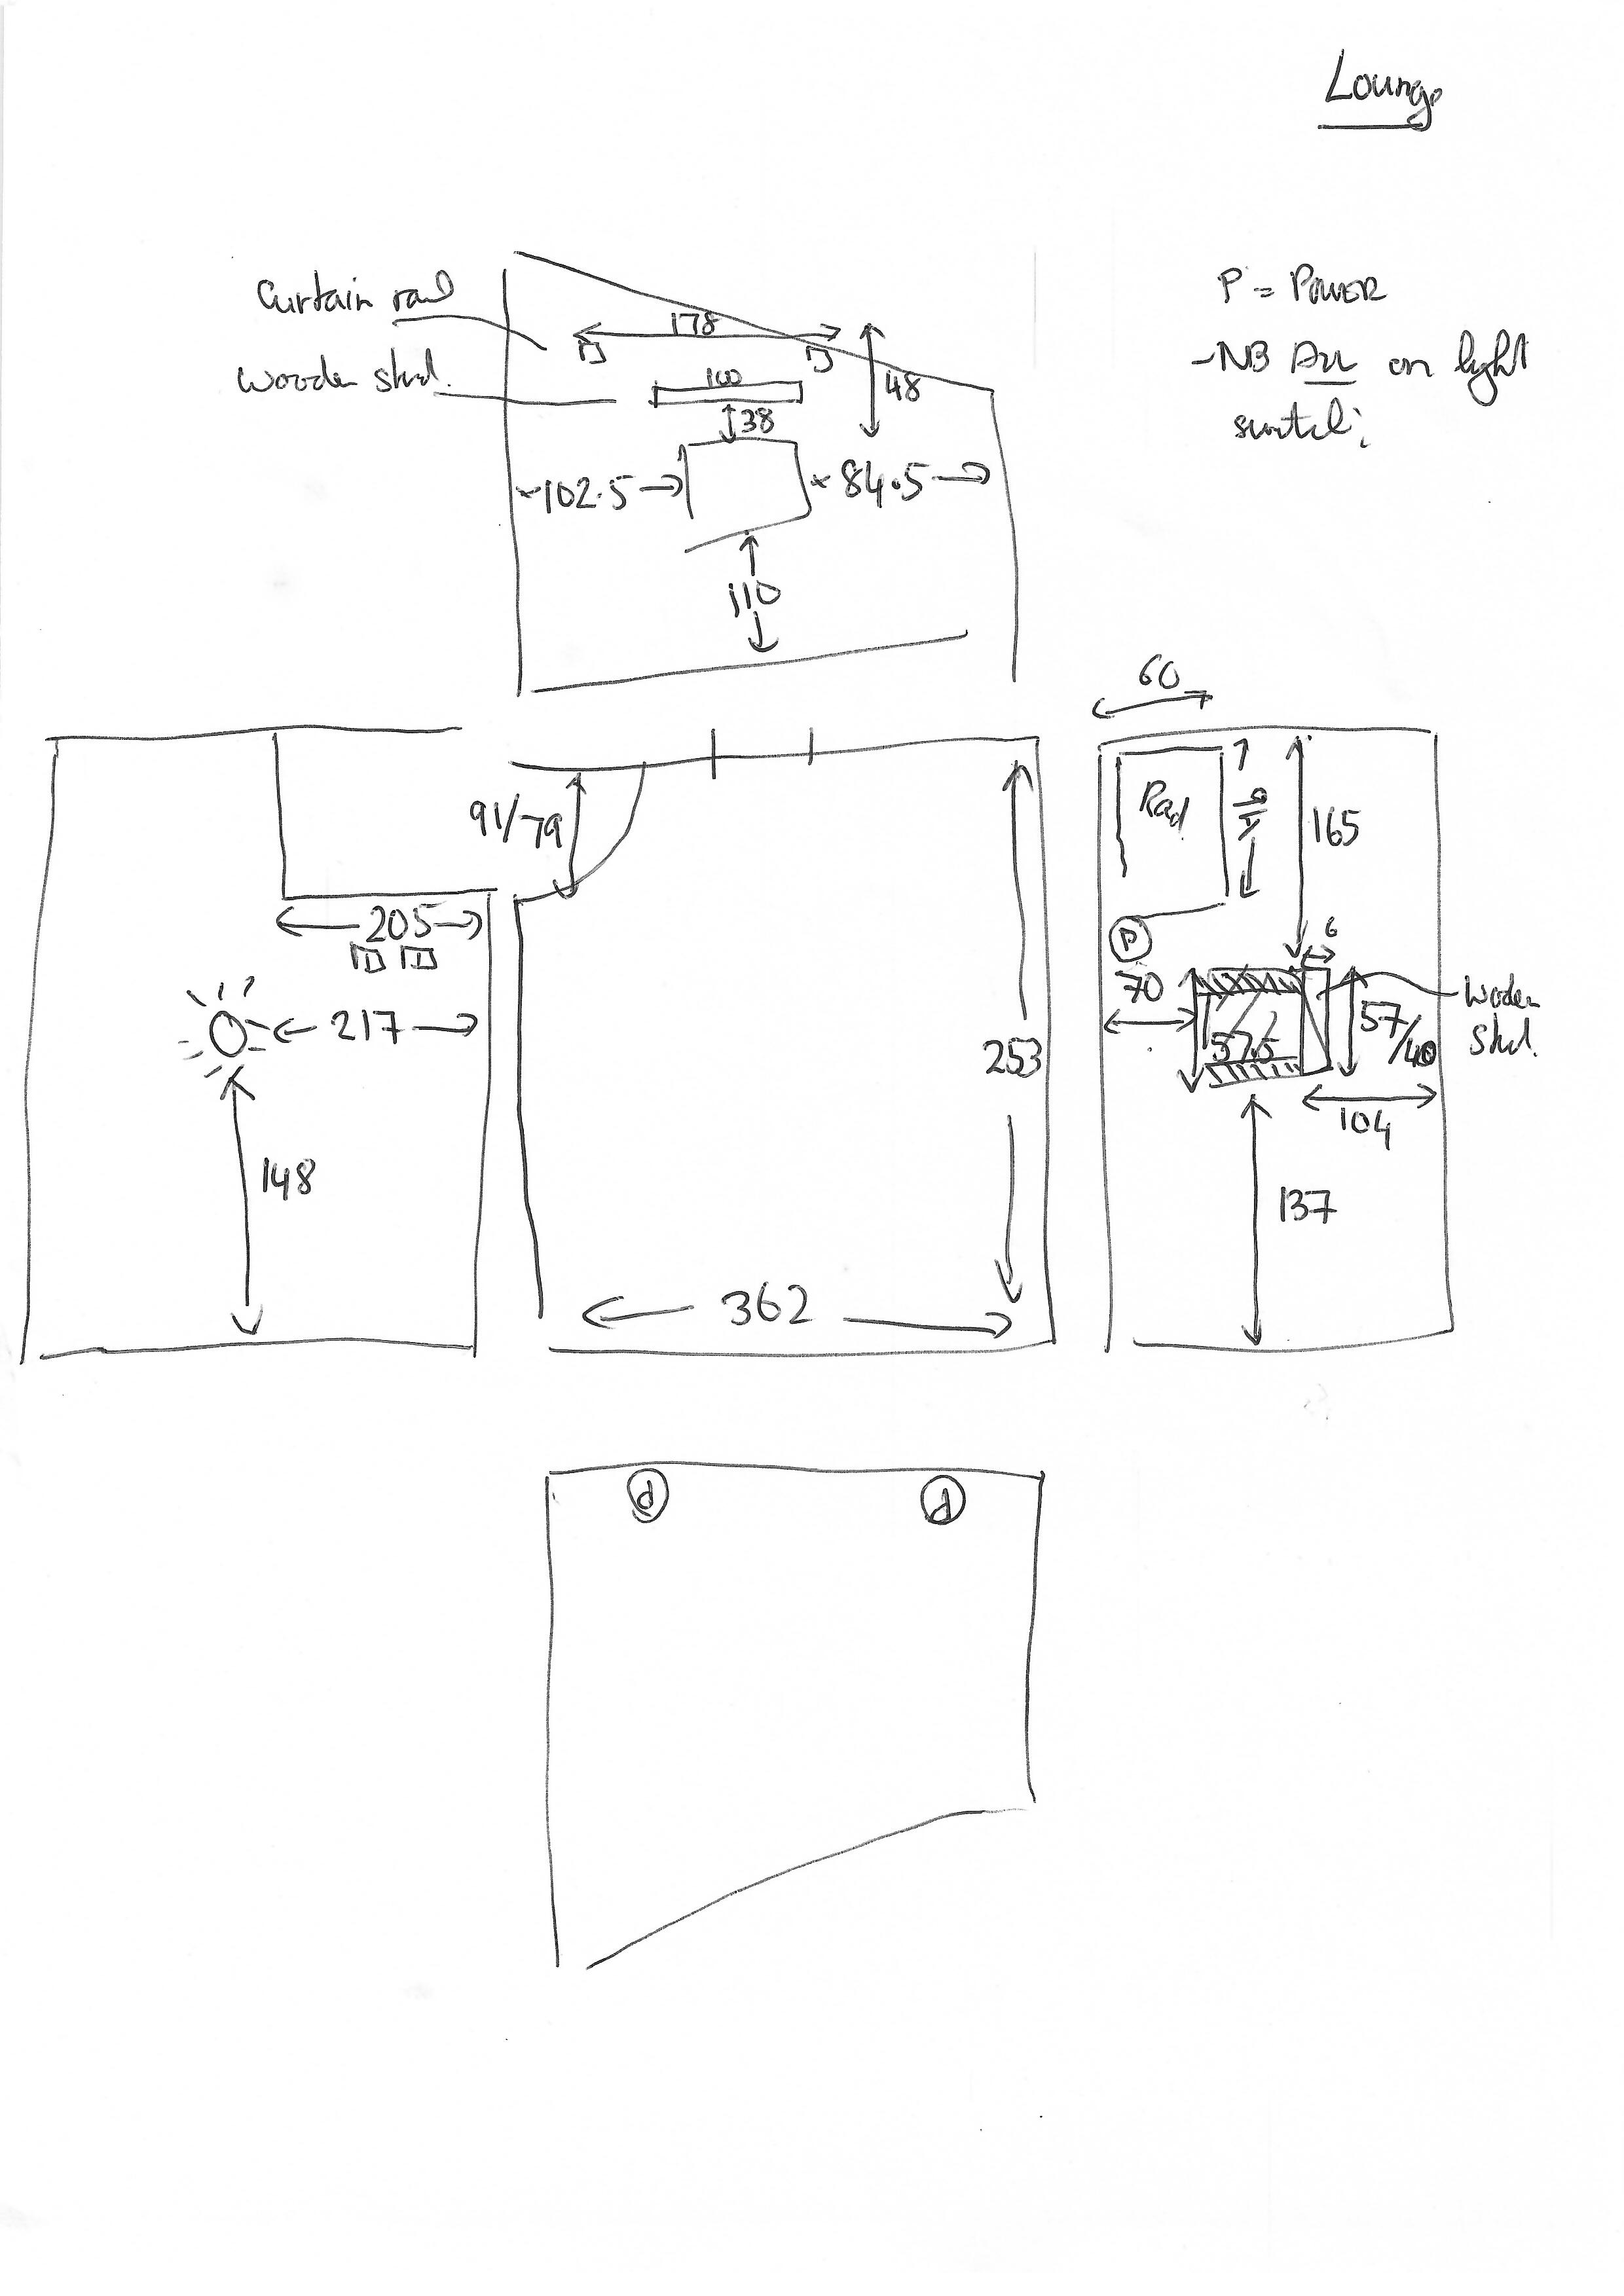 Lounge
Curtain rail
Wooden stud.
178
100
38
48
102.5
84.5
110
P = POWER
- NB on light
60
91/79
205
217
148
253
362
Rad
165
P
70
6
57.5
57/40
Wooden
Stud.
104
137